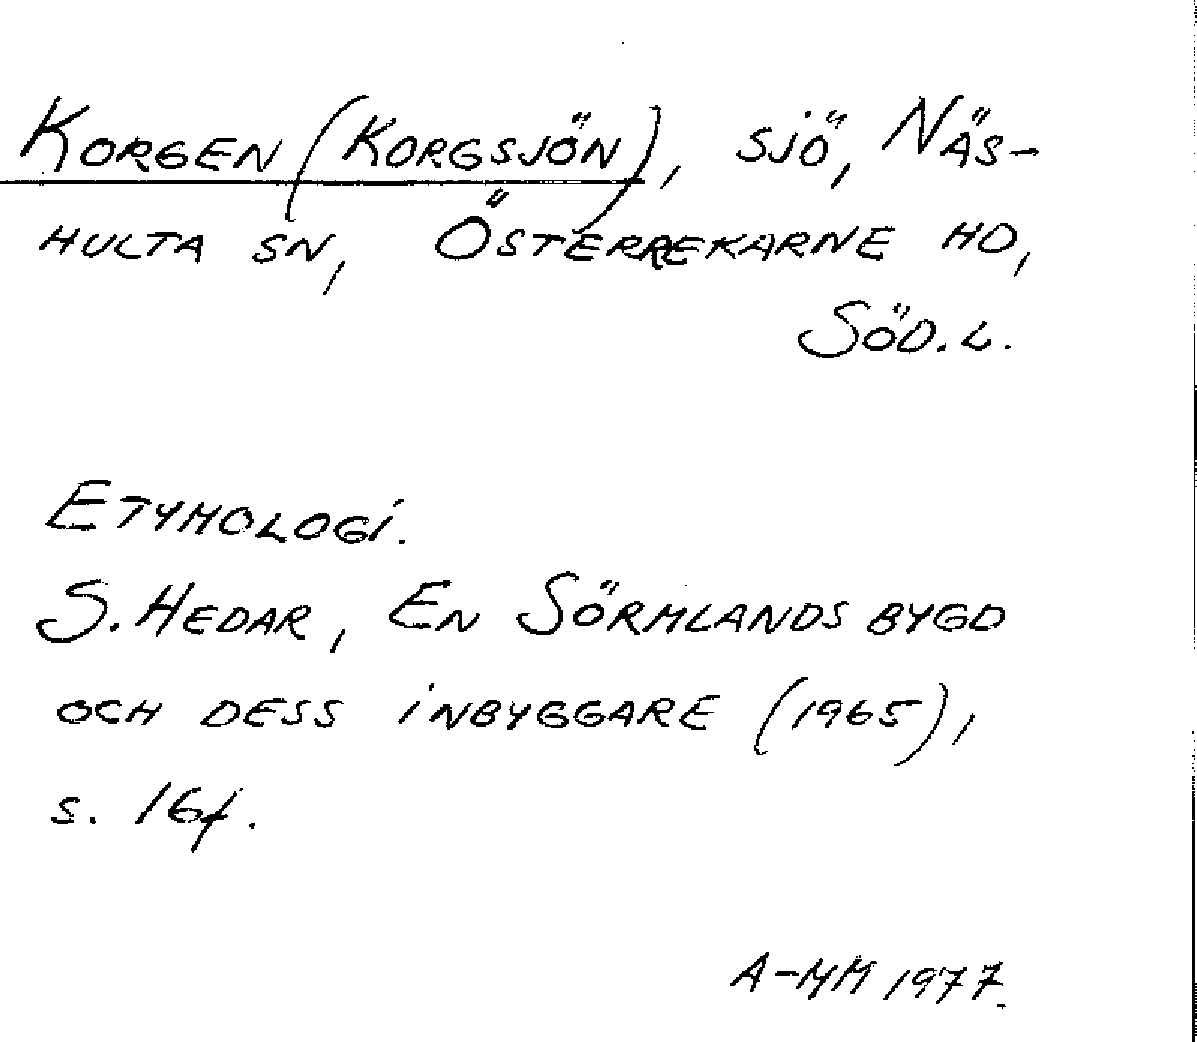 Korgen (Korgsjön), sjö, Näs-
hulta sn, Österrekarne hd,
Söd. l.
Etymologi.
S. Hedar, En Sörmlandsbygd
och dess inbyggare (1965),
s. 16f.
A-MM 1977.